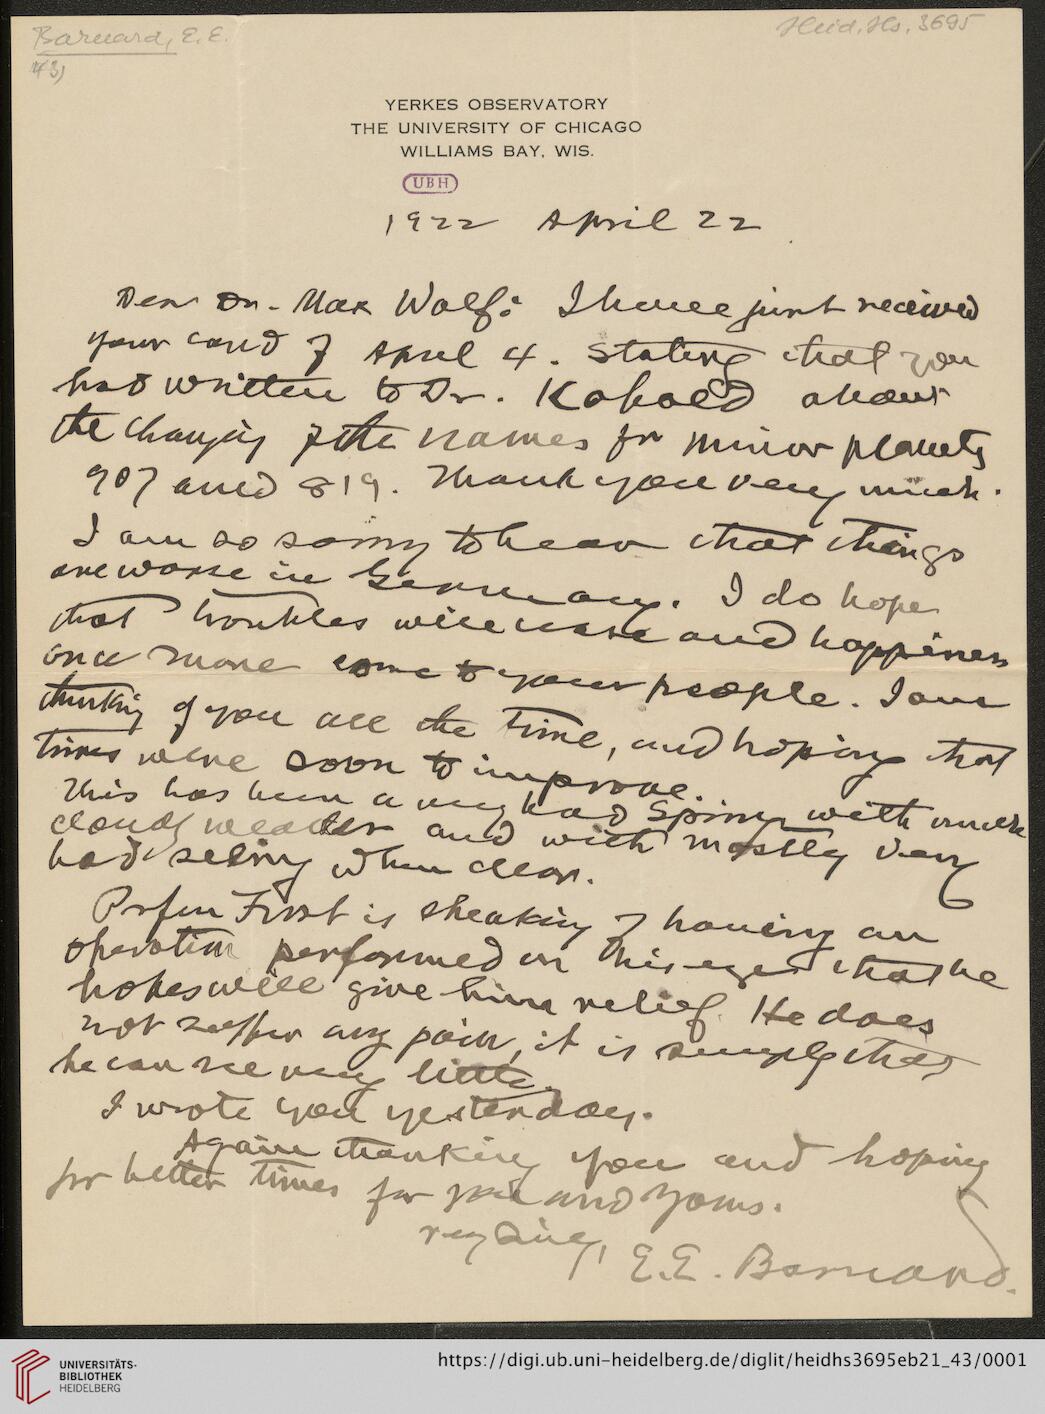 Barnard, E. E.
Heid. Hs. 3695
43)
YERKES OBSERVATORY
THE UNIVERSITY OF CHICAGO
WILLIAMS BAY, WIS.
UBH
1922 April 22
Dear Dr. Max Wolf: I have just received
your card of April 4. stating that you
had written to Dr. Kobold about
the changing of the names for minor planets
907 and 819. Thank you very much.
I am so sorry to hear that things
are worse in Germany. I do hope
that troubles will cease and happiness
once more come to your people. I am
thinking of you all the time, and hoping that
times were soon to improve.
This has been a very bad Spring with much
cloudy weather and with mostly very
bad seeing when clear.
Profsr Frost is speaking of having an
operation performed on his eyes that he
hopes will give him relief. He does
not suffer any pain, it is simply that
he can see very little.
I wrote you yesterday.
Again thanking you and hoping
for better times for you and yours.
very Sincy,
E. E. Barnard.
UNIVERSITÄTS-
BIBLIOTHEK
HEIDELBERG
https://digi.ub.uni-heidelberg.de/diglit/heidhs3695eb21_43/0001